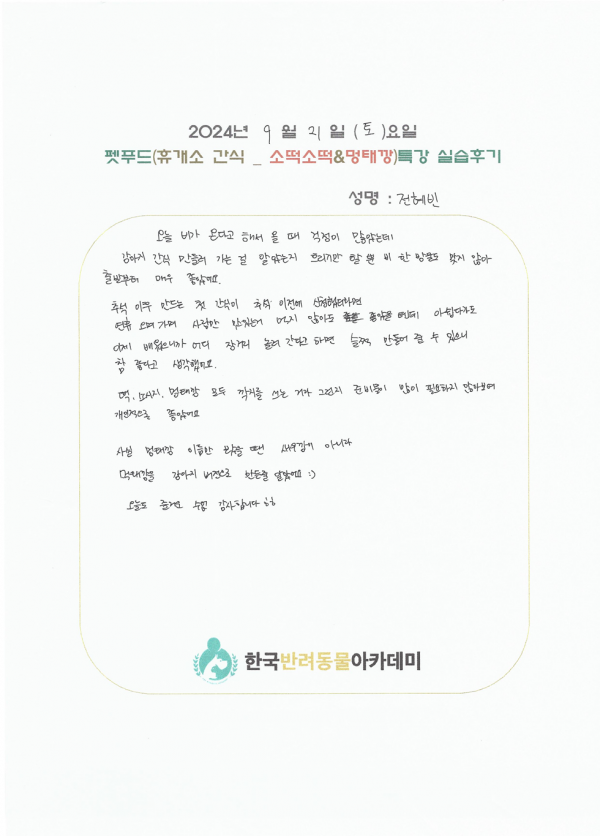 2024년 9월 21일 (토)요일
펫푸드(휴개소 간식 _ 소떡소떡&멍태깡)특강 실습후기
성명 : 전혜빈
오늘 비가 온다고 해서 올 때 걱정이 많았는데
강아지 간식 만들러 가는 걸 알았는지 흐리기만 할 뿐 비 한 방울도 맞지 않아
출발부터 매우 좋았어요.
추석 이후 만드는 첫 간식이 추석 이전에
연휴 오며 가며 사람만 맛있는거 먹지 않아도 좋았을 텐데 아쉽다가도
이제 배웠으니까 어디 장거리 놀러 간다고 하면 슬쩍 만들어 줄 수 있으니
참 좋다고 생각했어요.
떡, 소시지, 멍태깡 모두 깍지를 쓰는 거라 그런지 준비물이 많이 필요하지 않아보여
개인적으로 좋았어요
사실 멍태깡 이름만 봤을 땐 새우깡이 아니라
먹태깡을 강아지 버전으로 만든줄 알았어요 :)
오늘도 즐거운 수업 감사합니다 ㅎㅎ
한국반려동물아카데미